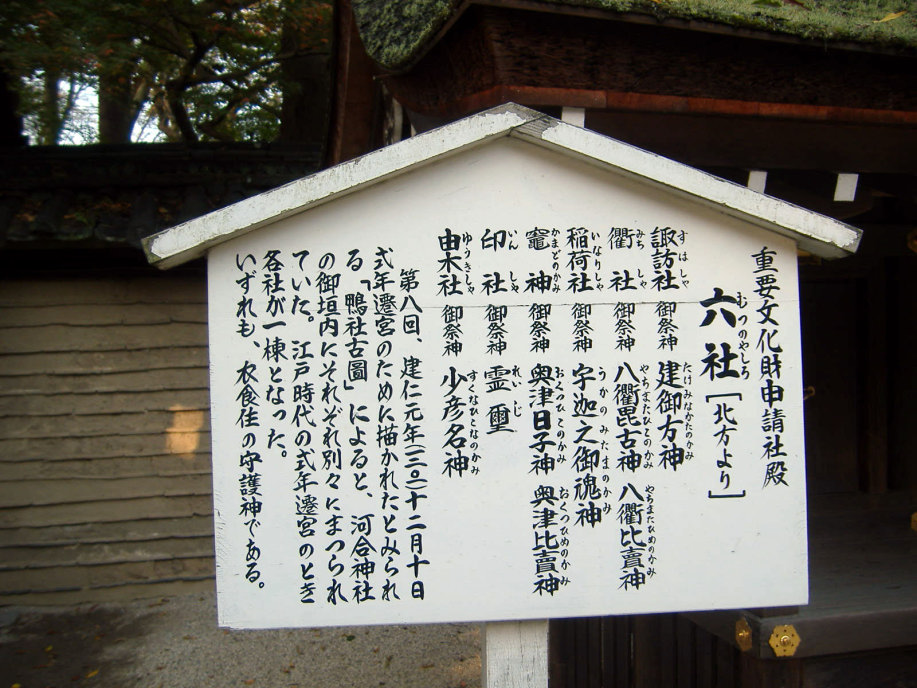 重要文化財申請社殿
六社［北方より］
むつのやしろ
諏訪社 御祭神 建御方神
すはしゃ たけみなかたのかみ
衢社 御祭神 八衢毘古神 八衢比賣神
みちしゃ やちまたひこのかみ やちまたひめのかみ
稲荷社 御祭神 宇迦之御魂神
いなりしゃ うかのみたまのかみ
竈神 御祭神 奥津日子神 奥津比賣神
かまどのかみ おくつひこのかみ おくつひめのかみ
印社 御祭神 霊璽
いんしゃ れいじ
由木社 御祭神 少彦名神
ゆうきしゃ すくなひこなのかみ
第八回、建仁元年(一二〇一)十二月十日
式年遷宮のために描かれたとみられ
る「鴨社古圖」によると、河合神社
の御垣内にそれぞれ別々にまつられ
ていた。江戸時代の式年遷宮のとき
各社が一棟となった。
いずれも、衣食住の守護神である。